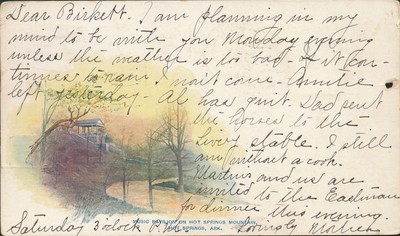 Dear Birkett. I am planning in my
mind to be with you Monday evening
unless the weather is too bad. If it con-
tinues to rain I won't come. Auntie
left yesterday. Al has quit. Dad sent
the horses to the
livery stable. I still
am without a cook.
Martins and we are
invited to the Eastman
for dinner this evening.
MUSIC PAVILION ON HOT SPRINGS MOUNTAIN,
HOT SPRINGS, ARK.
Saturday 3 o'clock P.M. Lovingly Mother